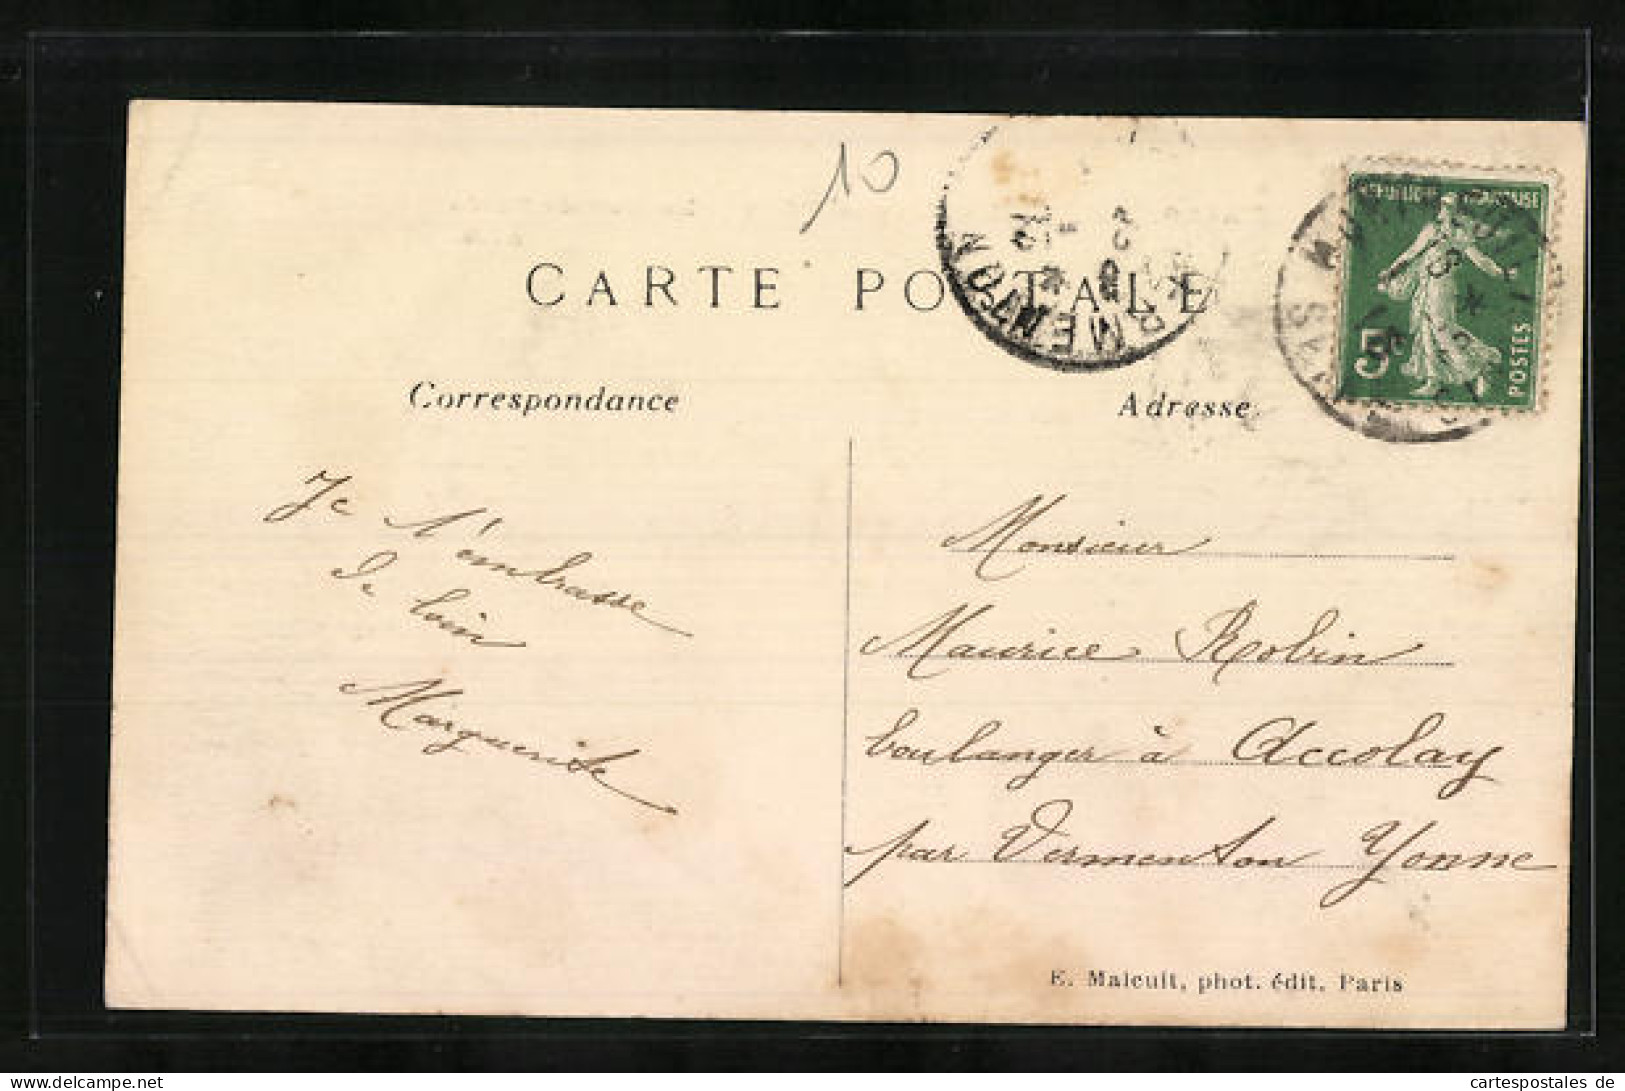 10
CARTE POSTALE
Correspondance
Adresse
RÉPUBLIQUE FRANÇAISE
5
POSTES
VERMENTON
Je t'embrasse
de loin
Marguerite
Monsieur
Maurice Robin
boulanger à Accolay
par Vermenton Yonne
E. Malcuit, phot. édit. Paris
cartespostales de